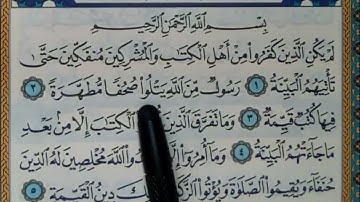 بِسْمِ اللَّهِ الرَّحْمَٰنِ الرَّحِيمِ
لَمْ يَكُنِ الَّذِينَ كَفَرُوا مِنْ أَهْلِ الْكِتَابِ وَالْمُشْرِكِينَ مُنفَكِّينَ حَتَّىٰ
تَأْتِيَهُمُ الْبَيِّنَةُ ١ رَسُولٌ مِّنَ اللَّهِ يَتْلُوا صُحُفًا مُّطَهَّرَةً ٢
فِيهَا كُتُبٌ قَيِّمَةٌ ٣ وَمَا تَفَرَّقَ الَّذِينَ الْكِتَابَ إِلَّا مِن بَعْدِ
مَا جَاءَتْهُمُ الْبَيِّنَةُ ٤ وَمَا أُمِرُوا إِلَّا اللَّهَ مُخْلِصِينَ لَهُ الدِّينَ
حُنَفَاءَ وَيُقِيمُوا الصَّلَاةَ وَيُؤْتُوا دِينُ الْقَيِّمَةِ ٥